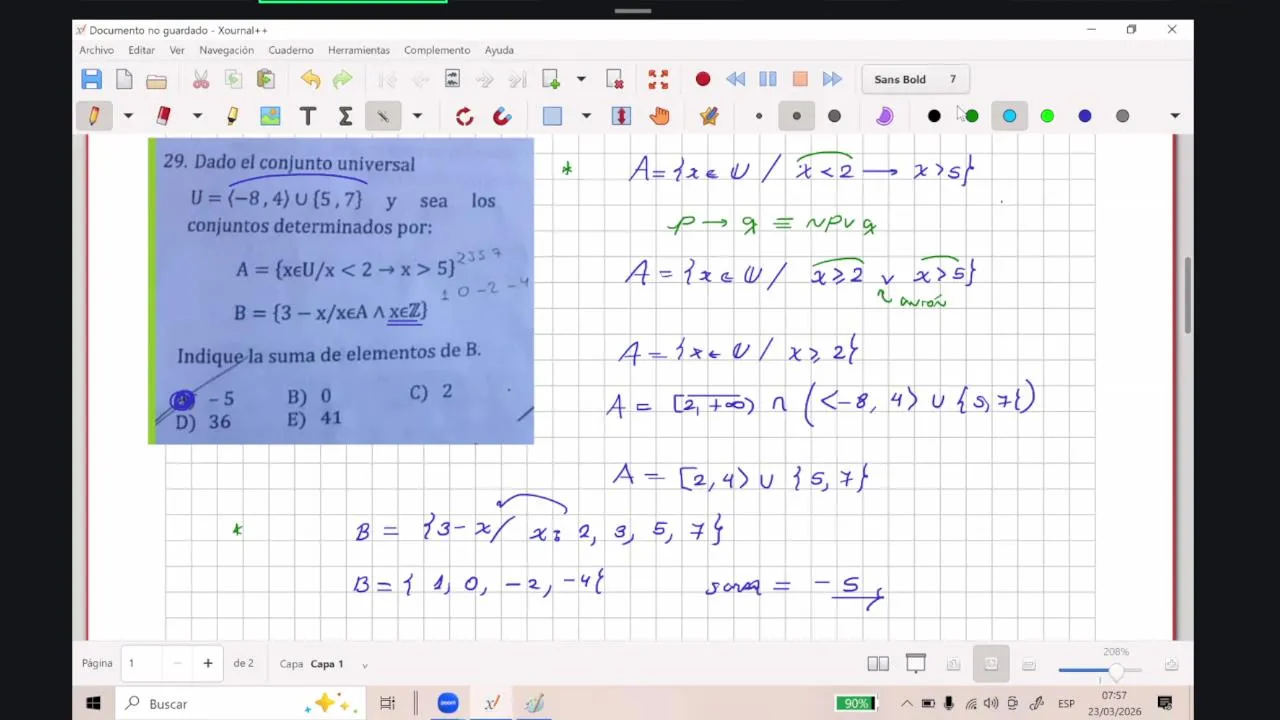 Documento no guardado - Xournal++
Archivo Editar Ver Navegación Cuaderno Herramientas Complemento Ayuda
Sans Bold 7
29. Dado el conjunto universal
U = ⟨−8, 4⟩ ∪ {5, 7} y sea los
conjuntos determinados por:
A = {x∈U/x < 2 → x > 5} 2357
1 0 -2 -4
B = {3 − x/x∈A ∧ x∈ℤ}
Indique la suma de elementos de B.
A) - 5 B) 0 C) 2
D) 36 E) 41
* A = {x ∈ U / x < 2 → x > 5}
p → q ≡ ~p ∨ q
A = {x ∈ U / x ≥ 2 ∨ x > 5}
unión
A = {x ∈ U / x ≥ 2}
A = [2, +∞⟩ ∩ (⟨-8, 4⟩ ∪ {5, 7})
A = [2, 4⟩ ∪ {5, 7}
* B = {3 - x / x: 2, 3, 5, 7}
B = {1, 0, -2, -4} suma = -5
Página 1 − + de 2 Capa Capa 1 208%
Buscar
zoom
90% ESP 07:57
23/03/2026